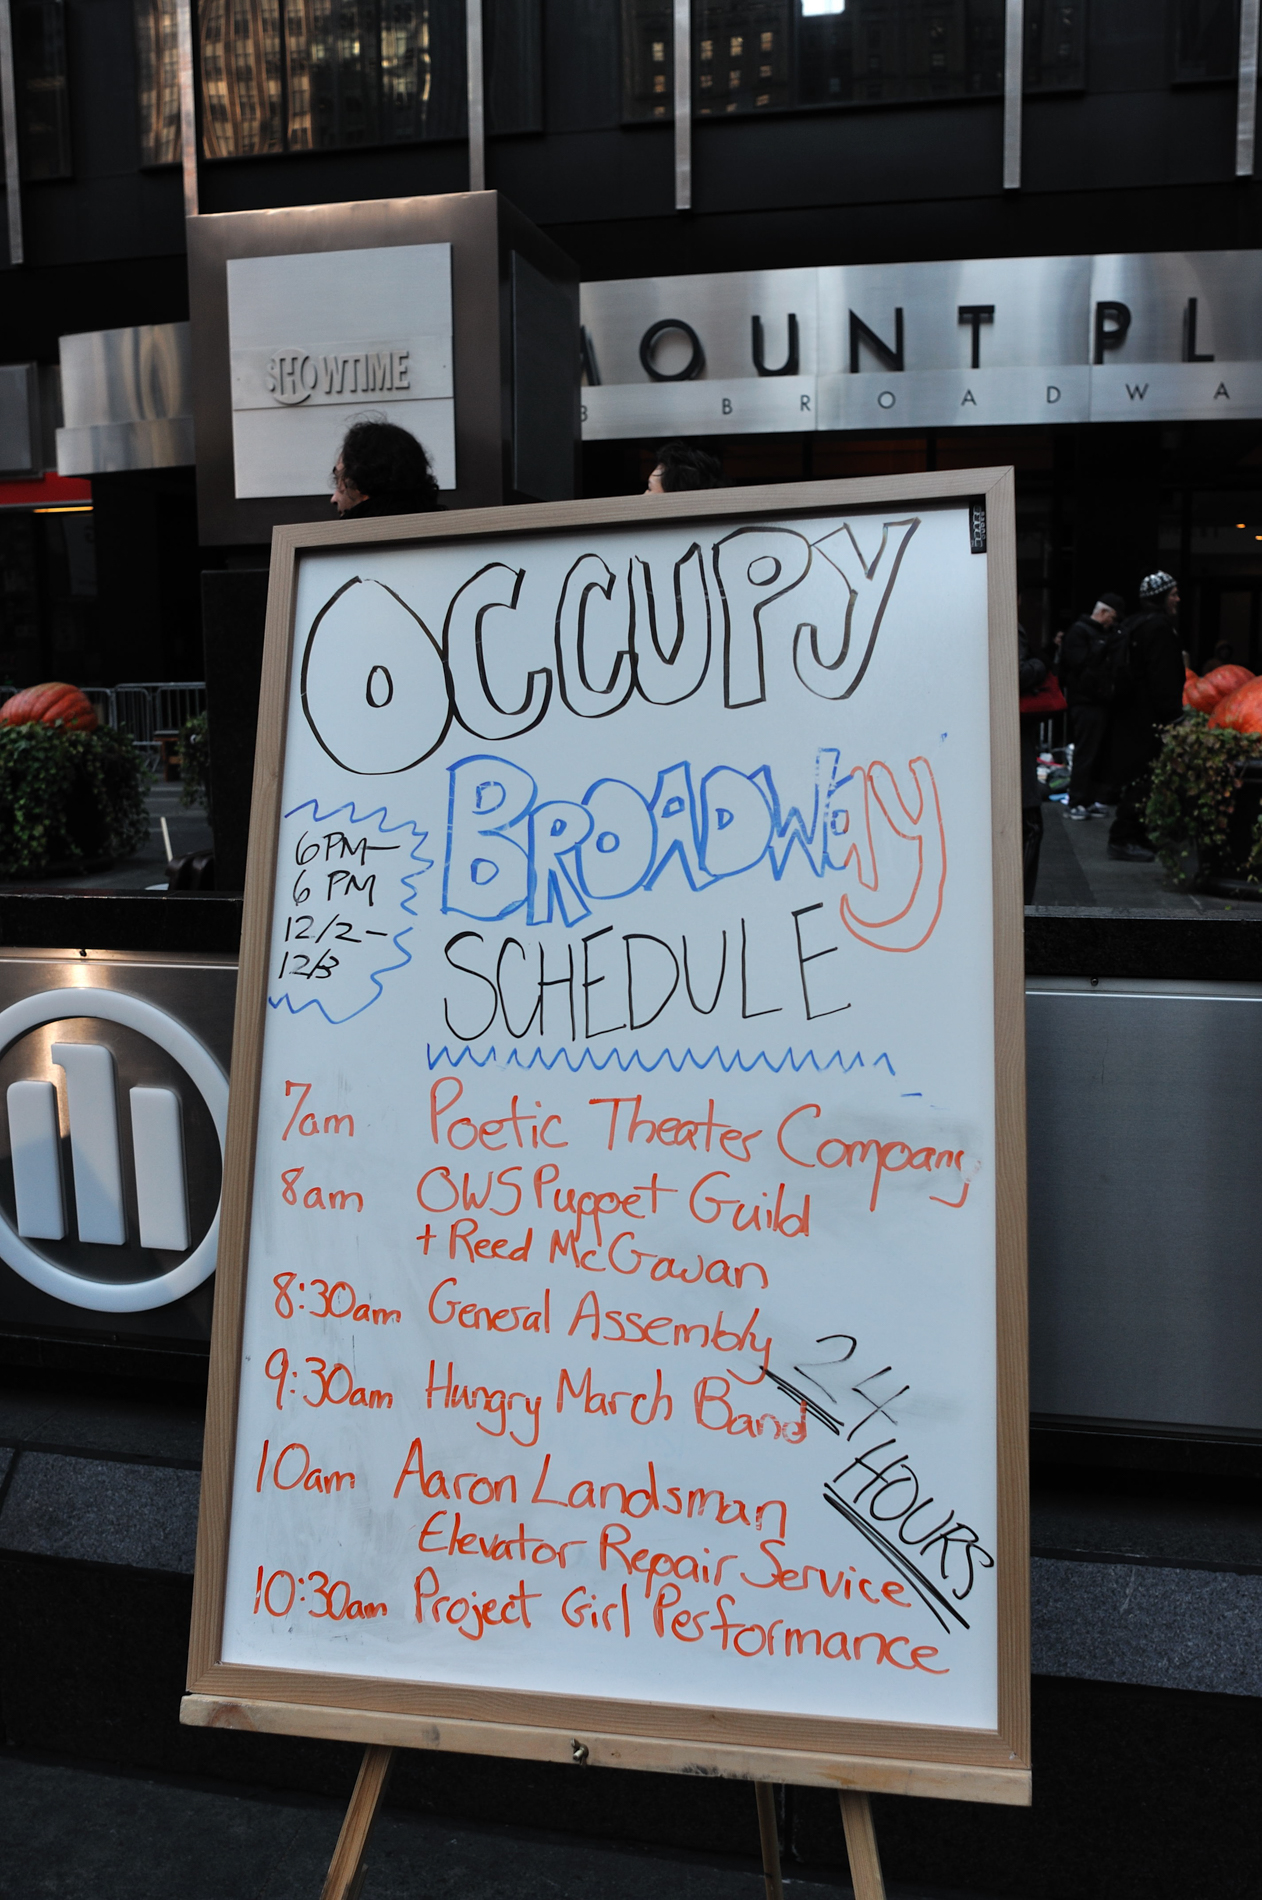 SHOWTIME
OUNT PL
BROADWA
OCCUPY
BROADWAY
SCHEDULE
6PM-
6 PM
12/2-
12/3
7am Poetic Theater Company
8am OWS Puppet Guild
+ Reed McGowan
8:30am General Assembly
9:30am Hungry March Band
10am Aaron Landsman
Elevator Repair Service
10:30am Project Girl Performance
24 HOURS